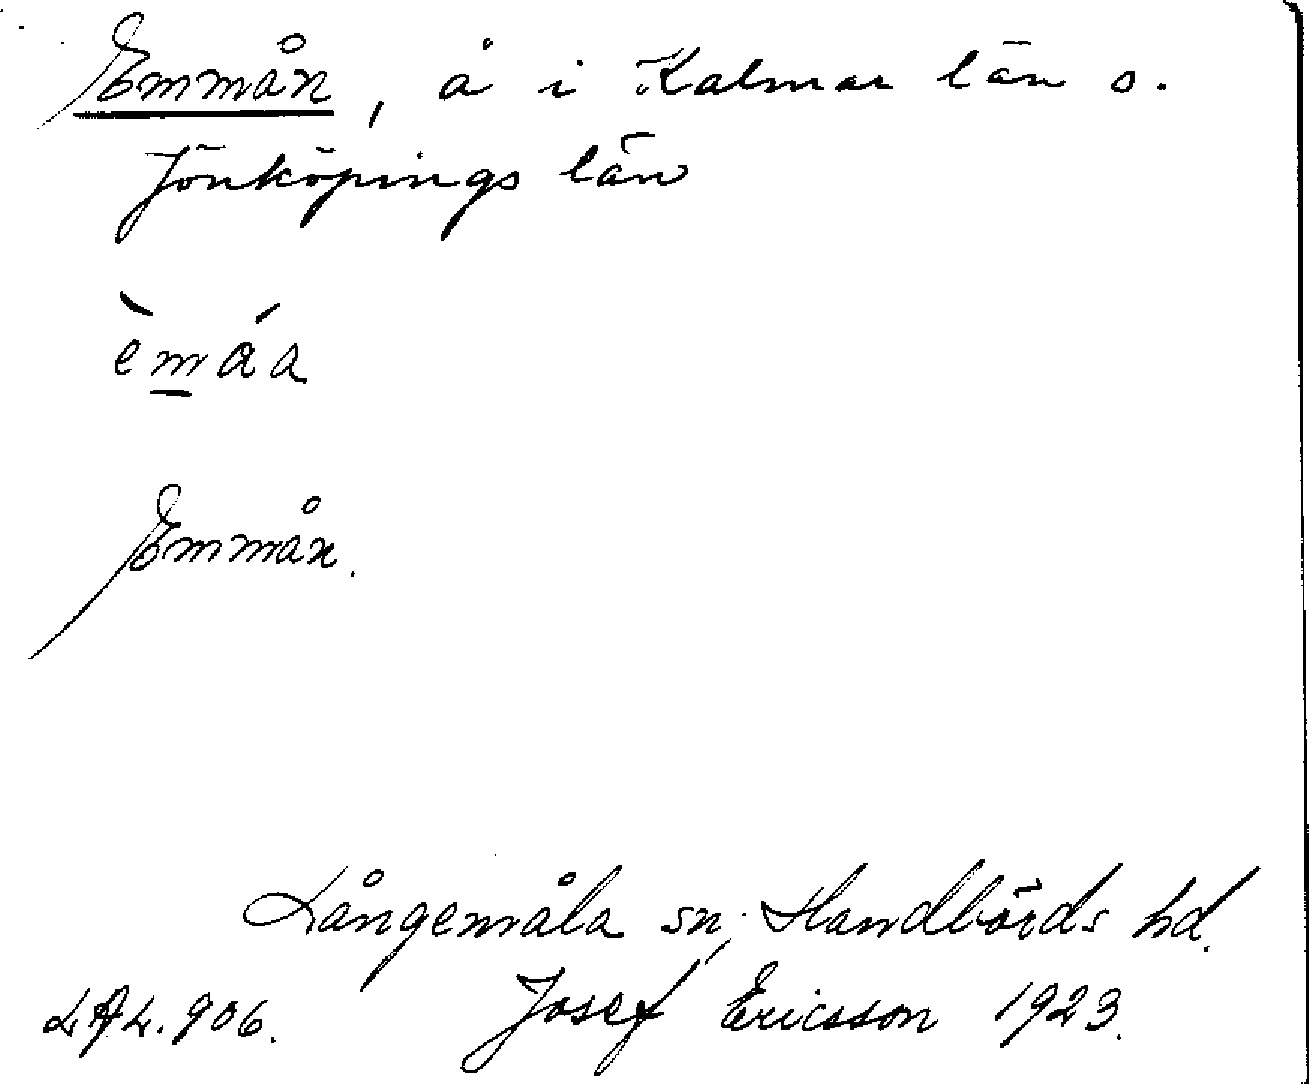 Emmån, å i Kalmar län o.
Jönköpings län
èmáa
Emmån.
Långemåla sn, Handbörds hd.
Josef Ericsson 1923.
LAL. 906.